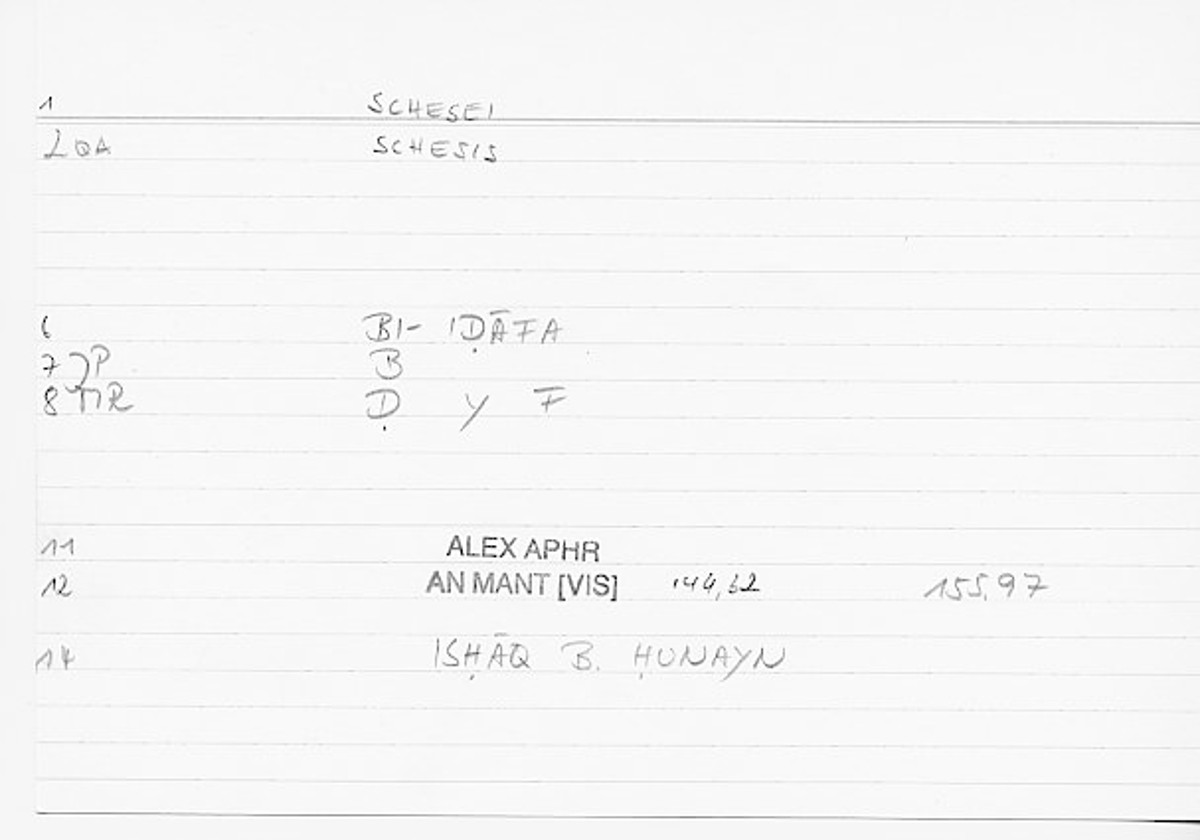 1 SCHESEI
LQA SCHESIS
6 BI- IḌĀFA
7 JP B
8 MR Ḍ Y F
11 ALEX APHR
12 AN MANT [VIS] 155,97
14 ISḤĀQ B. ḤUNAYN